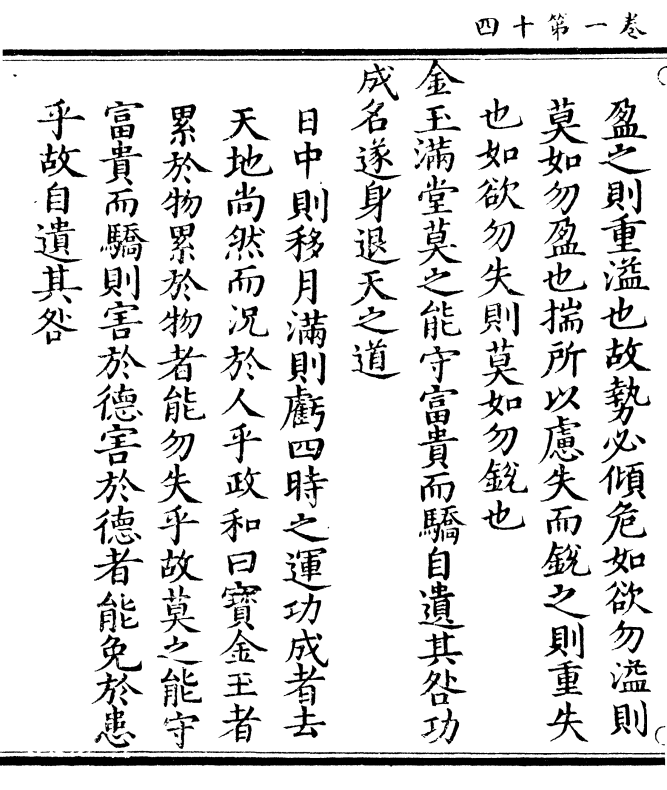 卷一第十四
盈之則重溢也故勢必傾危如欲勿溢則
莫如勿盈也揣所以慮失而銳之則重失
也如欲勿失則莫如勿銳也
金玉滿堂莫之能守富貴而驕自遺其咎功
成名遂身退天之道
日中則移月滿則虧四時之運功成者去
天地尚然而况於人乎政和曰寶金玉者
累於物累於物者能勿失乎故莫之能守
富貴而驕則害於德害於德者能免於患
乎故自遺其咎